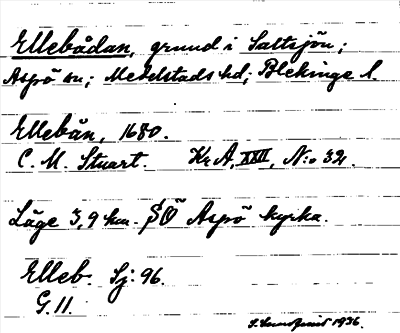 Ellebådan, grund i Saltsjön;
Aspö sn; Medelstads hd; Blekinge l.
Ellebån, 1680.
C. M. Stuart. Kr A, XXII, N:o 32.
Läge 3,9 km. SÖ Aspö kyrka.
Elleb. Sj: 96.
G. 11.
1936.